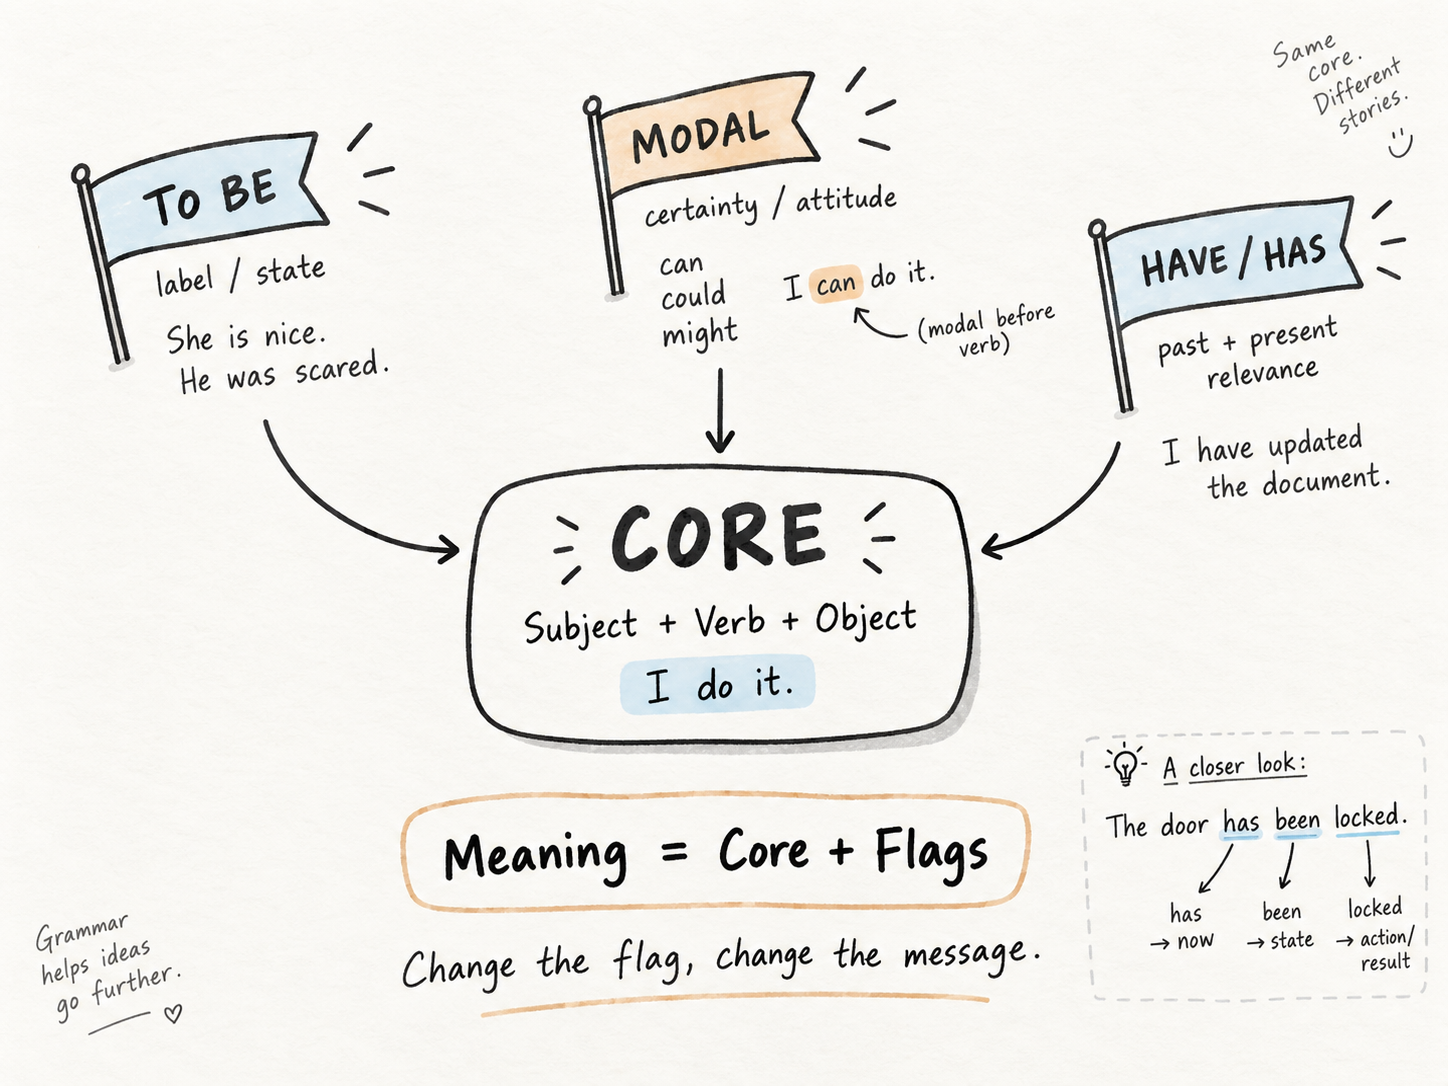 Same
core.
Different
stories.
TO BE
label / state
She is nice.
He was scared.
MODAL
certainty / attitude
can
could
might
I can do it.
(modal before
verb)
HAVE / HAS
past + present
relevance
I have updated
the document.
CORE
Subject + Verb + Object
I do it.
Meaning = Core + Flags
Change the flag, change the message.
A closer look:
The door has been locked.
has
→ now
been
→ state
locked
→ action/
result
Grammar
helps ideas
go further.